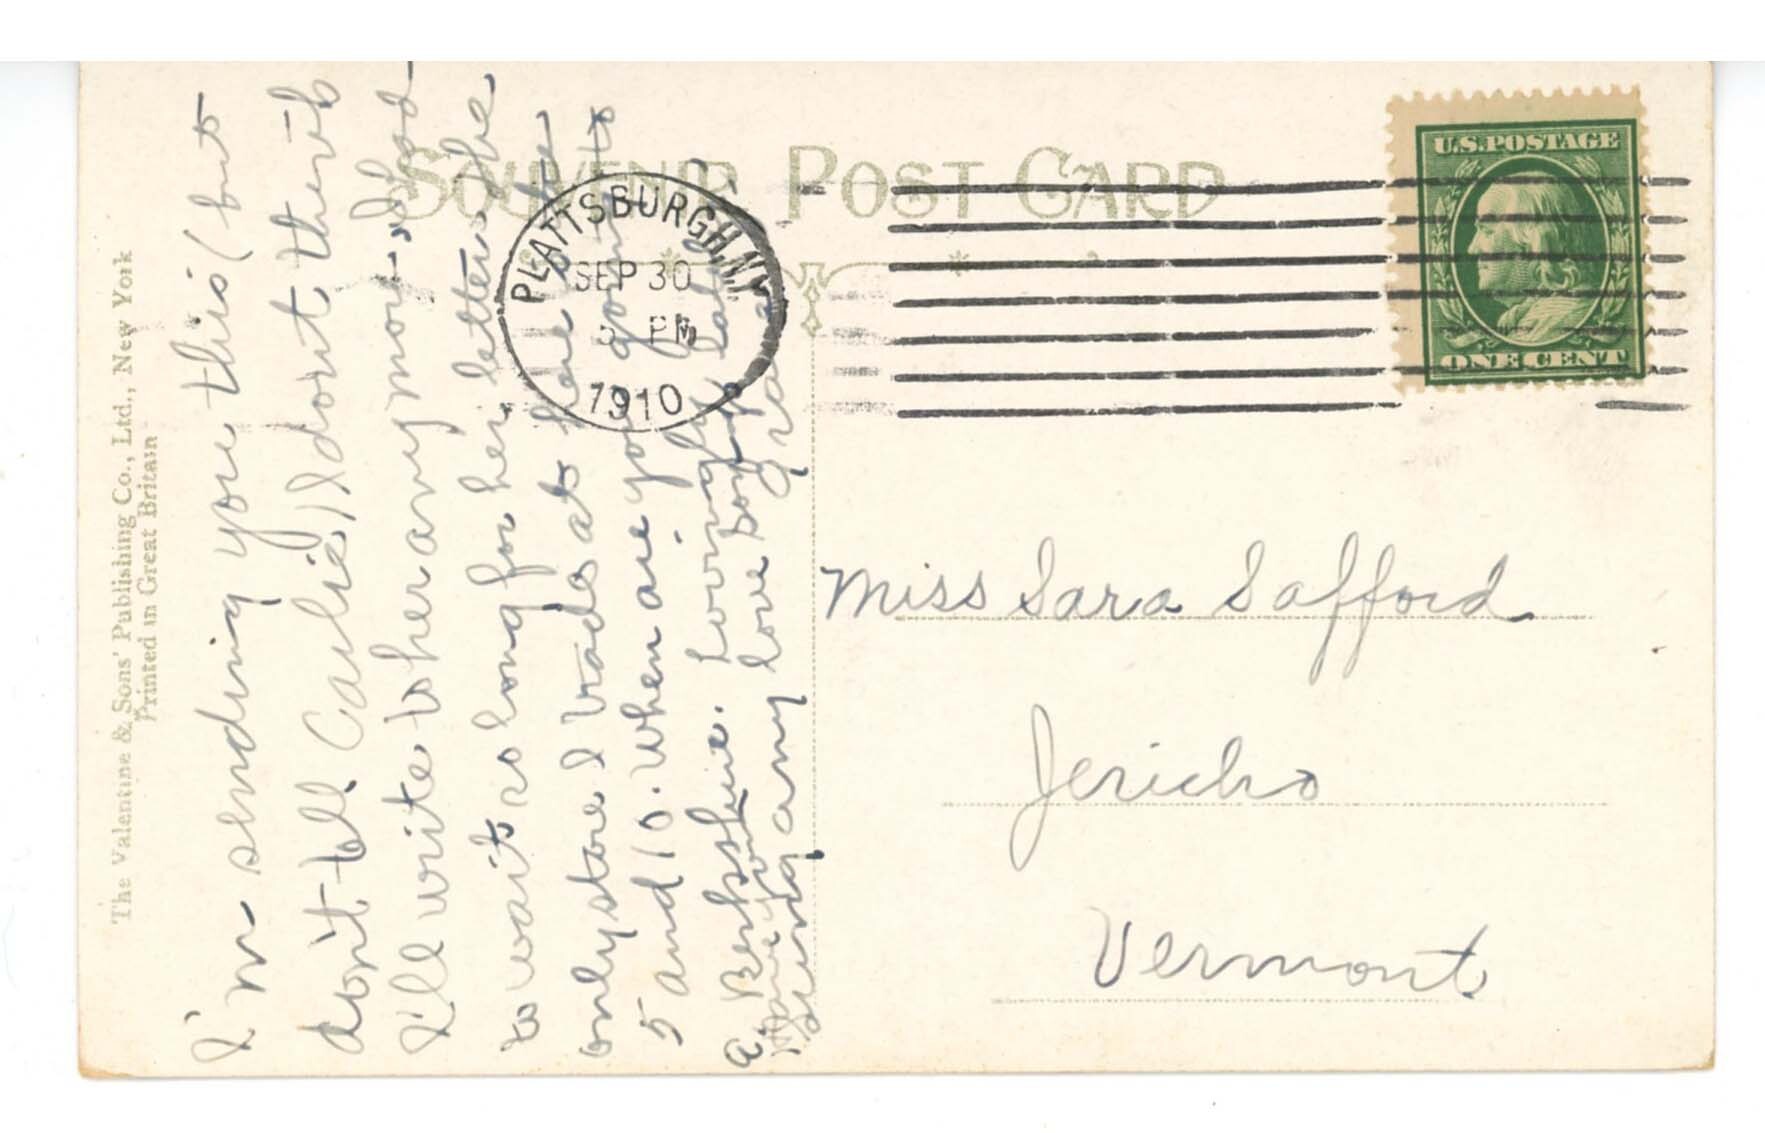 SOUVENIR POST CARD
U.S. POSTAGE
ONE CENT
PLATTSBURGH, N.Y.
SEP 30
PM
1910
The Valentine & Sons' Publishing Co., Ltd., New York
Printed in Great Britain
I'm sending you this (but
don't tell Carlie) I dont think
I'll write to her any more I had
to wait so long for her letter. The
only store I trade at here is the
5 and 10. When are you going to
a. Lovingly
any love
Miss Sara Safford
Jericho
Vermont